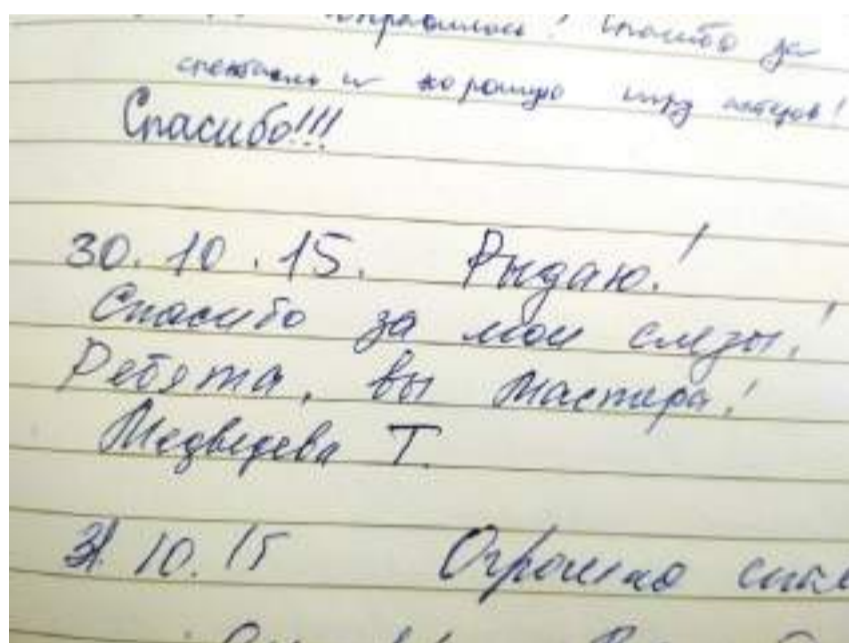 понравилось! Спасибо за
спектакль и хорошую игру актеров!
Спасибо!!!
30.10.15. Рыдаю!
Спасибо за мои слезы!
Ребята, вы мастера!
Медведева Т.
31.10.15 Огромно